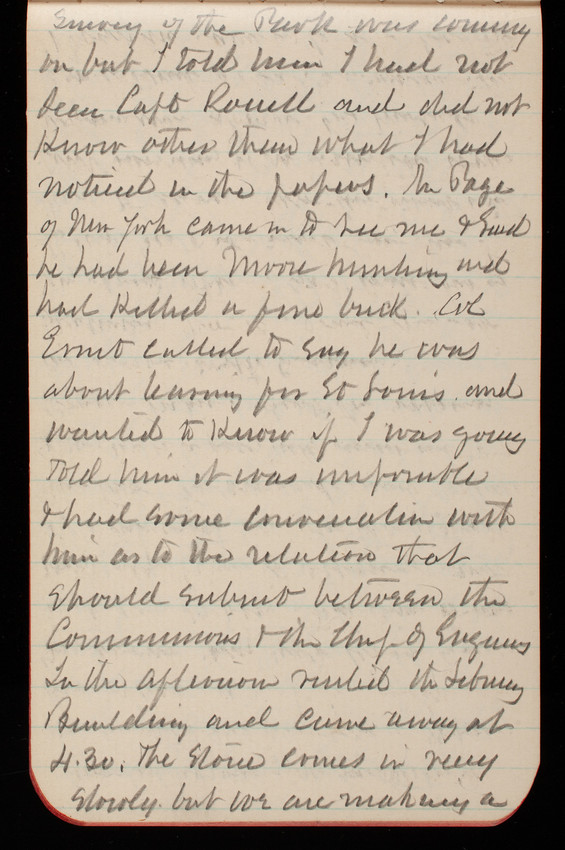 Survey of the Park was coming
on but I told him I had not
seen Capt Rossell and did not
Know other than what I had
noticed in the papers. Mr Page
of New York came in to see me & said
he had been Moose hunting and
had Killed a fine buck. Col
Ernst called to say he was
about leaving for St Louis. and
wanted to Know if I was going
Told him it was impossible
& had some conversation with
him as to the relation that
should subsist between the
Commissions & the Chief of Engineers
In the afternoon visited the Library
Building and came away at
4.30. The stone comes in very
slowly. but we are making a